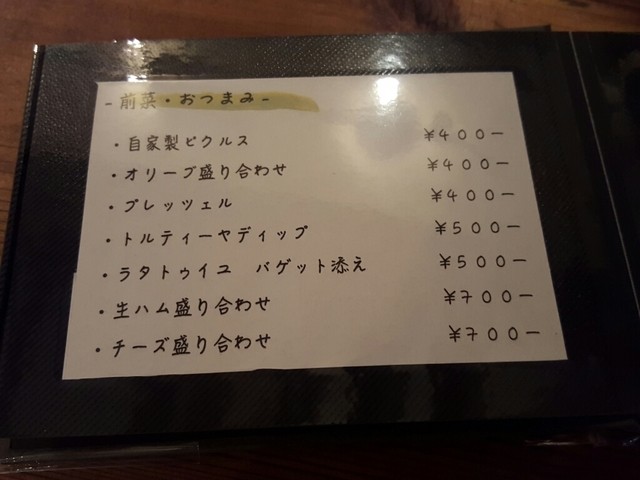 -前菜・おつまみ-
・自家製ピクルス ￥４００ー
・オリーブ盛り合わせ ￥４００ー
・プレッツェル ￥４００ー
・トルティーヤディップ ￥５００ー
・ラタトゥイユ　バゲット添え ￥５００ー
・生ハム盛り合わせ ￥７００ー
・チーズ盛り合わせ ￥７００ー